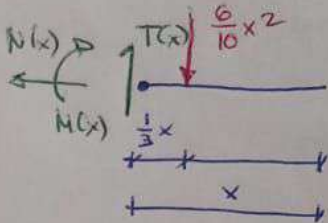 N(x) T(x) 6/10 x 2
M(x)
1/3 x
x